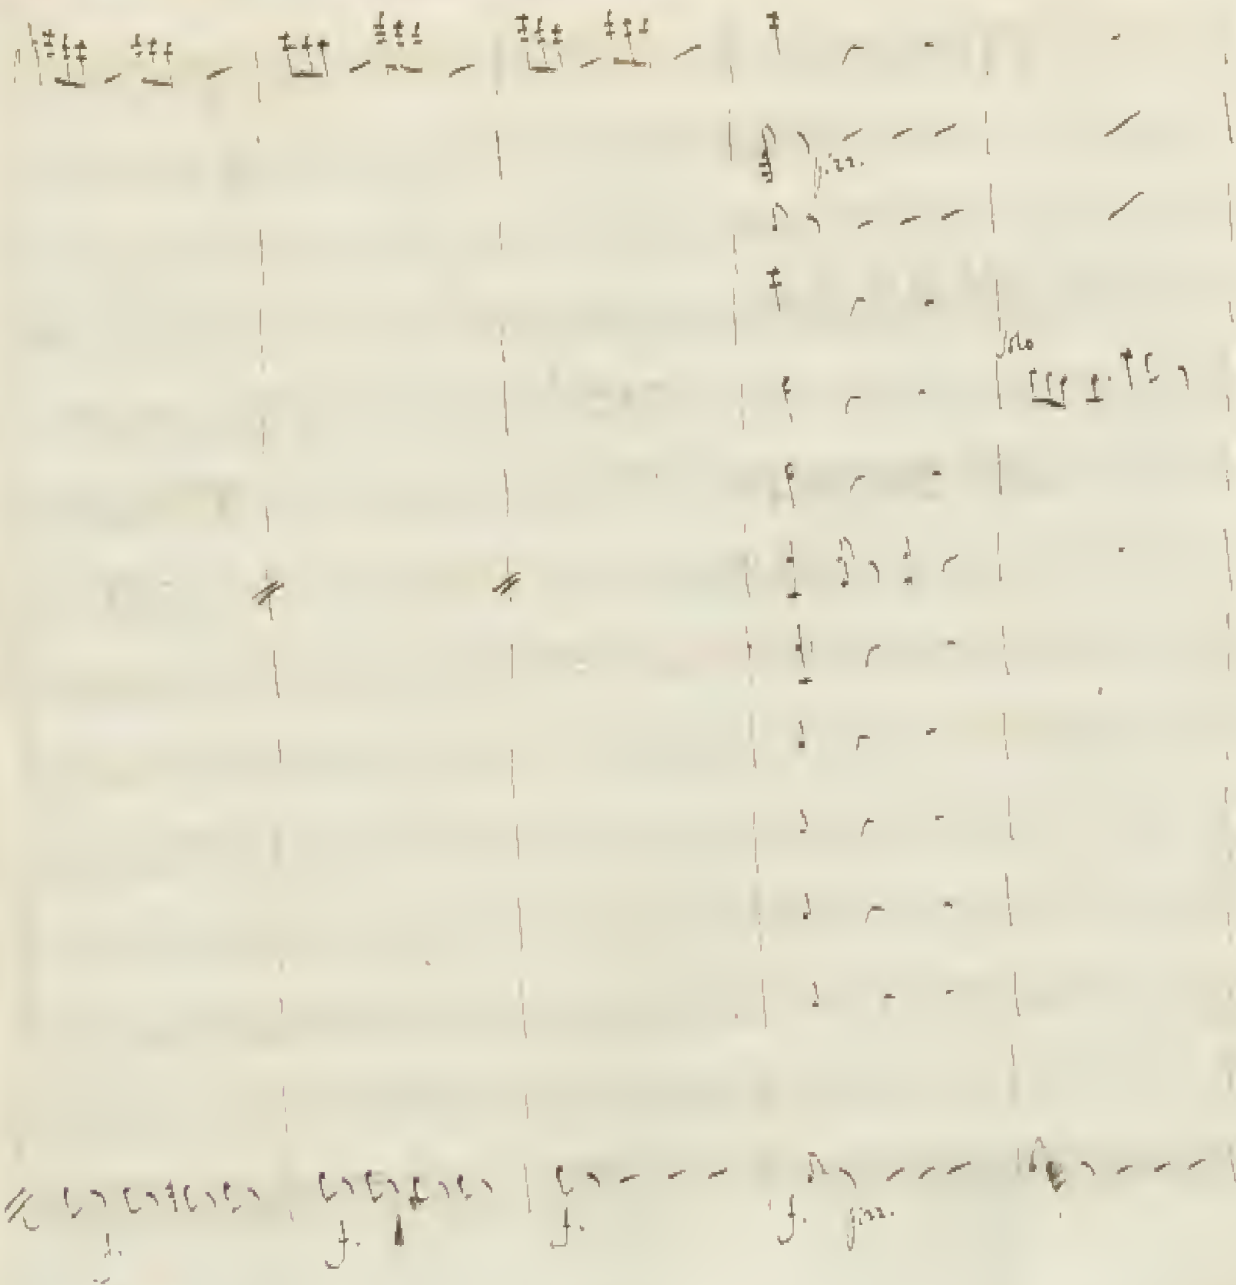 pizz.
Solo
f. f. f. f. pizz.